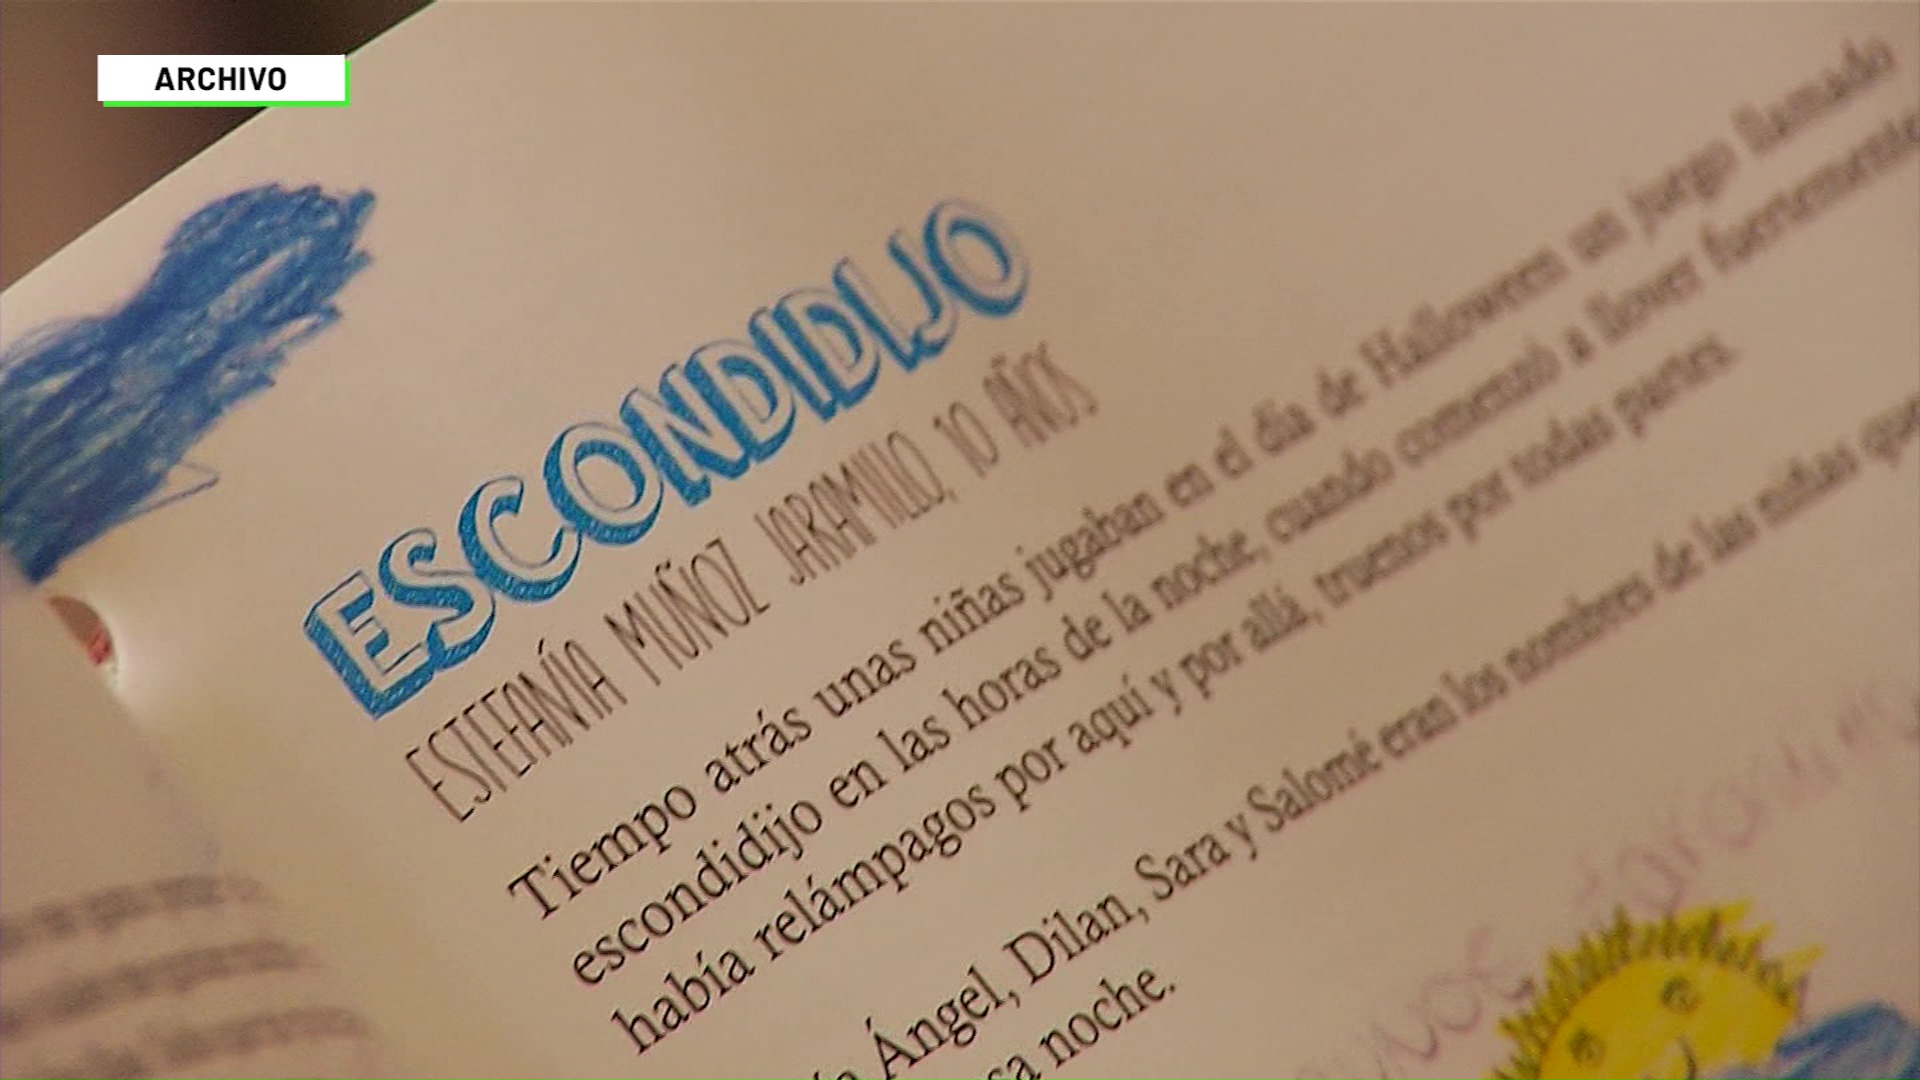 ARCHIVO
ESCONDIDIJO
ESTEFANÍA MUÑOZ JARAMILLO, 10 AÑOS.
Tiempo atrás unas niñas jugaban en el día de Halloween un juego llamado
escondidijo en las horas de la noche, cuando comenzó a llover fuertemente
había relámpagos por aquí y por allá, truenos por todas partes.
Ángel, Dilan, Sara y Salomé eran los nombres de las niñas que
noche.